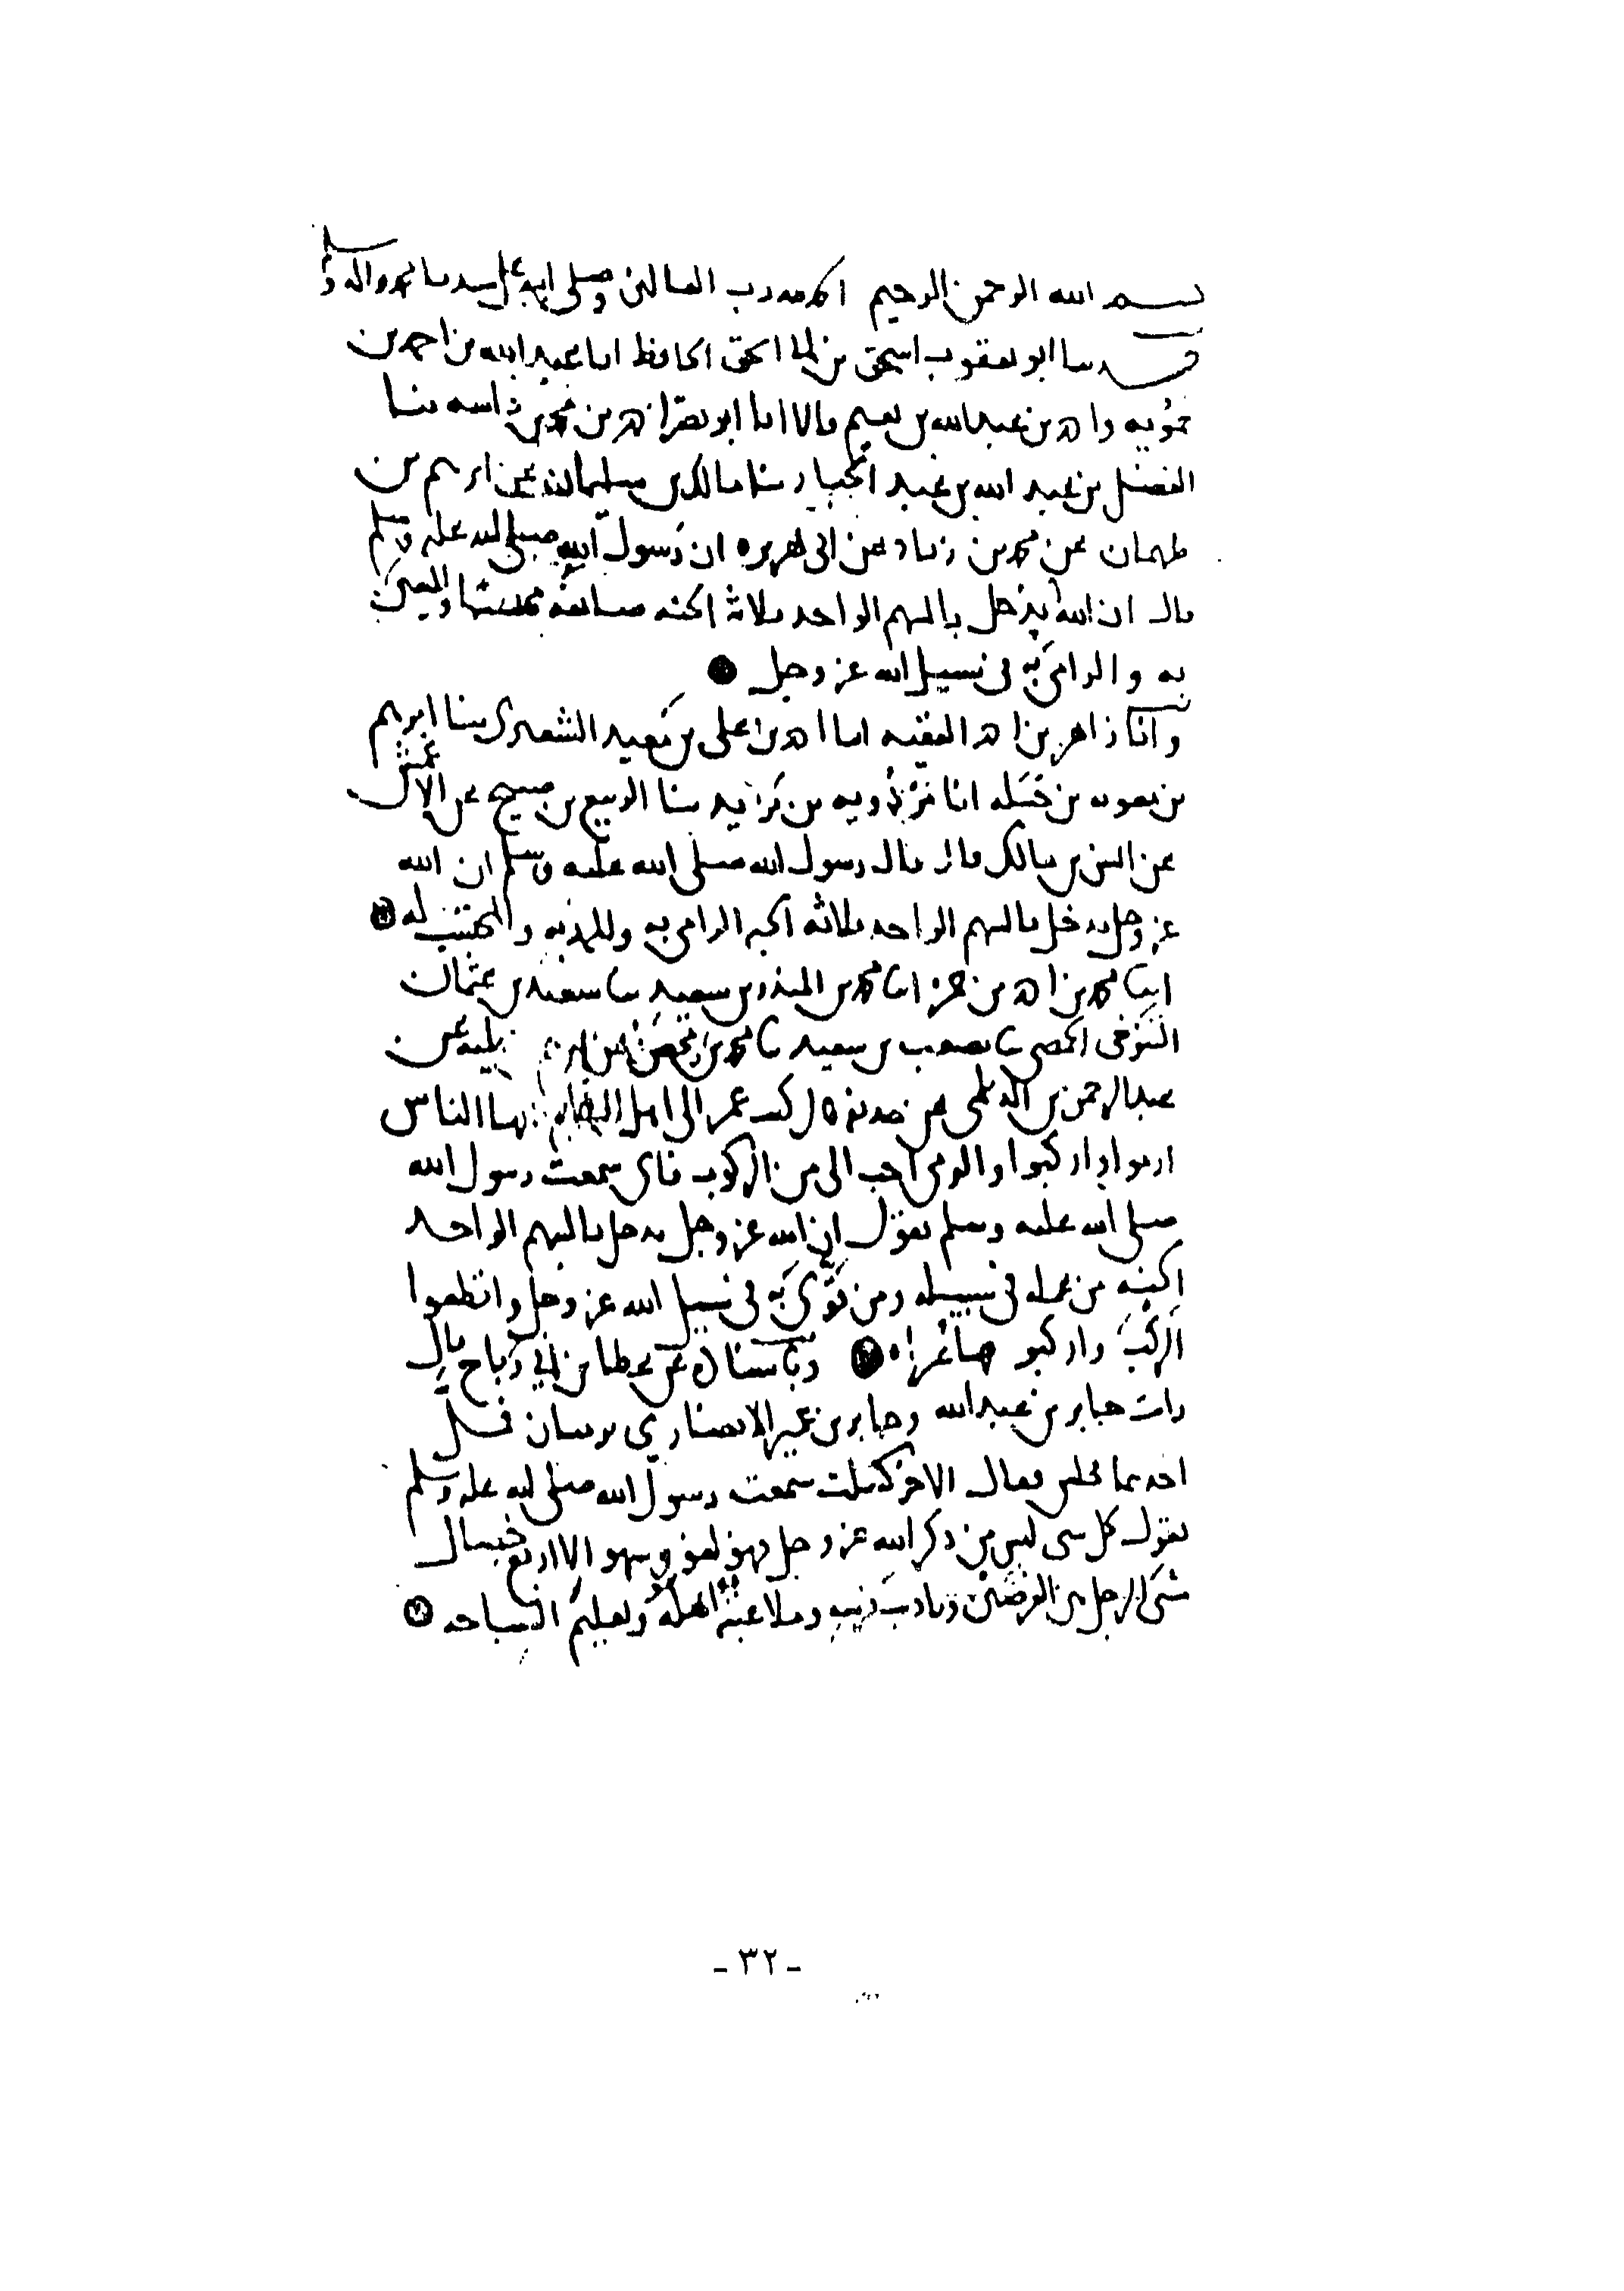 بسم الله الرحمن الرحيم الحمد لله رب العالمين وصلى الله على سيدنا محمد واله وسلم
حدثنا ابو يعقوب اسحق بن الحافظ انا عبد الله بن احمد بن
حمويه واحمد بن عبد الله بن نعيم قالا انا ابو نصر احمد بن محمد بن ثنا
الفضل بن عبد الله بن عبد الجبار ثنا مالك بن سليمان عن ابرهيم بن
طهمان عن محمد بن زياد عن ابي هريره ان رسول الله صلى الله عليه وسلم
قال ان الله يدخل بالسهم الواحد ثلاثة الجنه صانعه محتسبا والمعين
به والرامي به في سبيل الله عز وجل
وانا زاهر بن احمد الفقيه انا احمد بن علي بن معبد الشعيري ثنا ابرهيم
بن انا بن ثنا الربيع بن صبيح عن الاعمش
عن انس بن مالك قال قال رسول الله صلى الله عليه وسلم ان الله
عز وجل يدخل بالسهم الواحد ثلاثه الجنه الرامي به والممد به والمحتسب له
انبا محمد بن احمد بن حمزه انا محمد بن المنذر بن سعيد ثنا سعيد بن عثمان
التنوخي الحمصي ثنا مصعب بن سعيد ثنا محمد بن محصن عن ابرهيم عبله عن
عبد الرحمن بن الديلمي عن حذيفه قال كتب عمر الى اهل الشام ايها الناس
ارموا واركبوا والرمي احب الي من الركوب فاني سمعت رسول الله
صلى الله عليه وسلم يقول ان الله عز وجل يدخل بالسهم الواحد
الجنه من عمله في سبيله ومن قوي به في سبيل الله عز وجل واقطعوا
الركب واركبوا
عن عطا بن ابي رباح قال
رايت جابر بن عبد الله وجابر بن عمير الانصاري يرميان فمل
احدهما فجلس فقال الاخر كسلت سمعت رسول الله صلى الله عليه وسلم
يقول كل شي ليس من ذكر الله عز وجل فهو لغو وسهو الا اربع خصال
مشي الرجل بين الغرضين وتاديب فرسه وملاعبته اهله وتعليم السباحه
- ٣٢ -